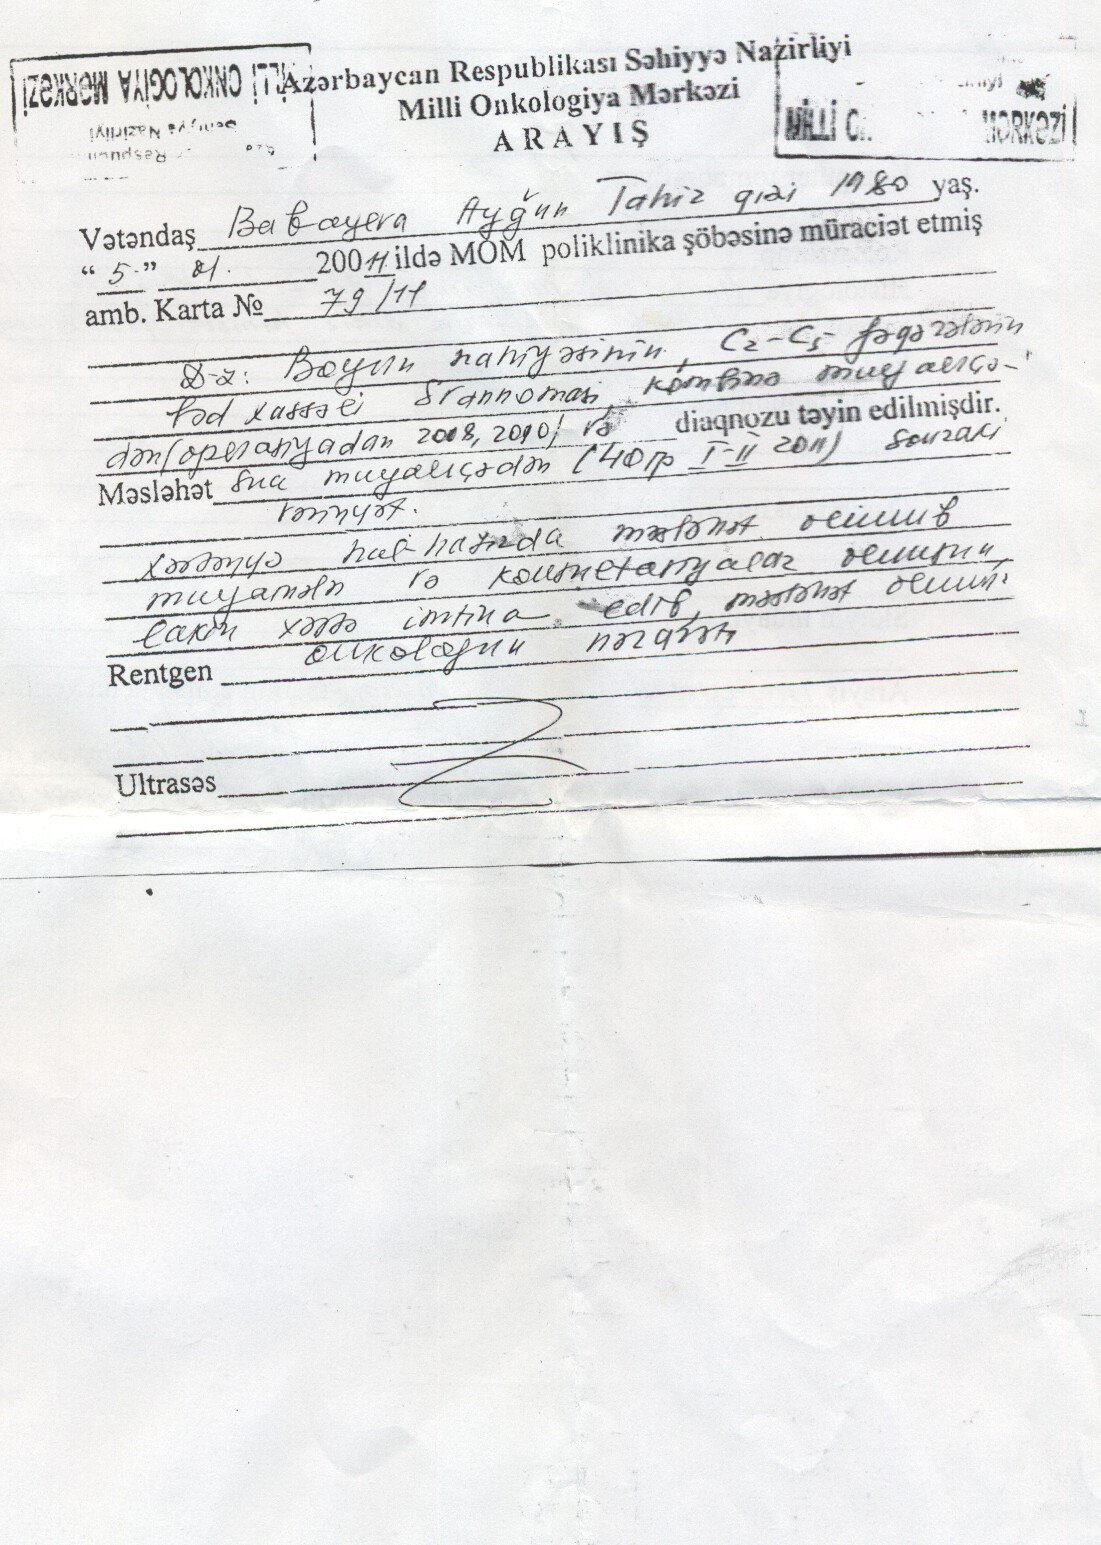 MİLLİ ONKOLOGİYA MƏRKƏZİ
Səhiyyə Nazirliyi
Azərbaycan Respublikası Səhiyyə Nazirliyi
Milli Onkologiya Mərkəzi
ARAYIŞ
MİLLİ MƏRKƏZİ
Vətəndaş Babayeva Ayğun Tahir qızi 1980 yaş.
"5" 200 11 ildə MOM poliklinika şöbəsinə müraciət etmiş
amb. Karta № 79/11
D-z: Boyun nahiyəsinin, C2-C5 fəqərələrin
bəd xassəli kombinə muyalicə-
dən (operasiyadan 2008, 2010) və diaqnozu təyin edilmişdir.
Məsləhət şua muyalicədən (40гр I-II 2011) sonraki
vəziyyət.
Xəstəyə hal-hazırda məsləhət olunub
muyanələr və konsultasiyalar olunsun
lakin xəstə imtina edib, məsləhət olunur
onkoloğun nəzarəti
Rentgen
Ultrasəs